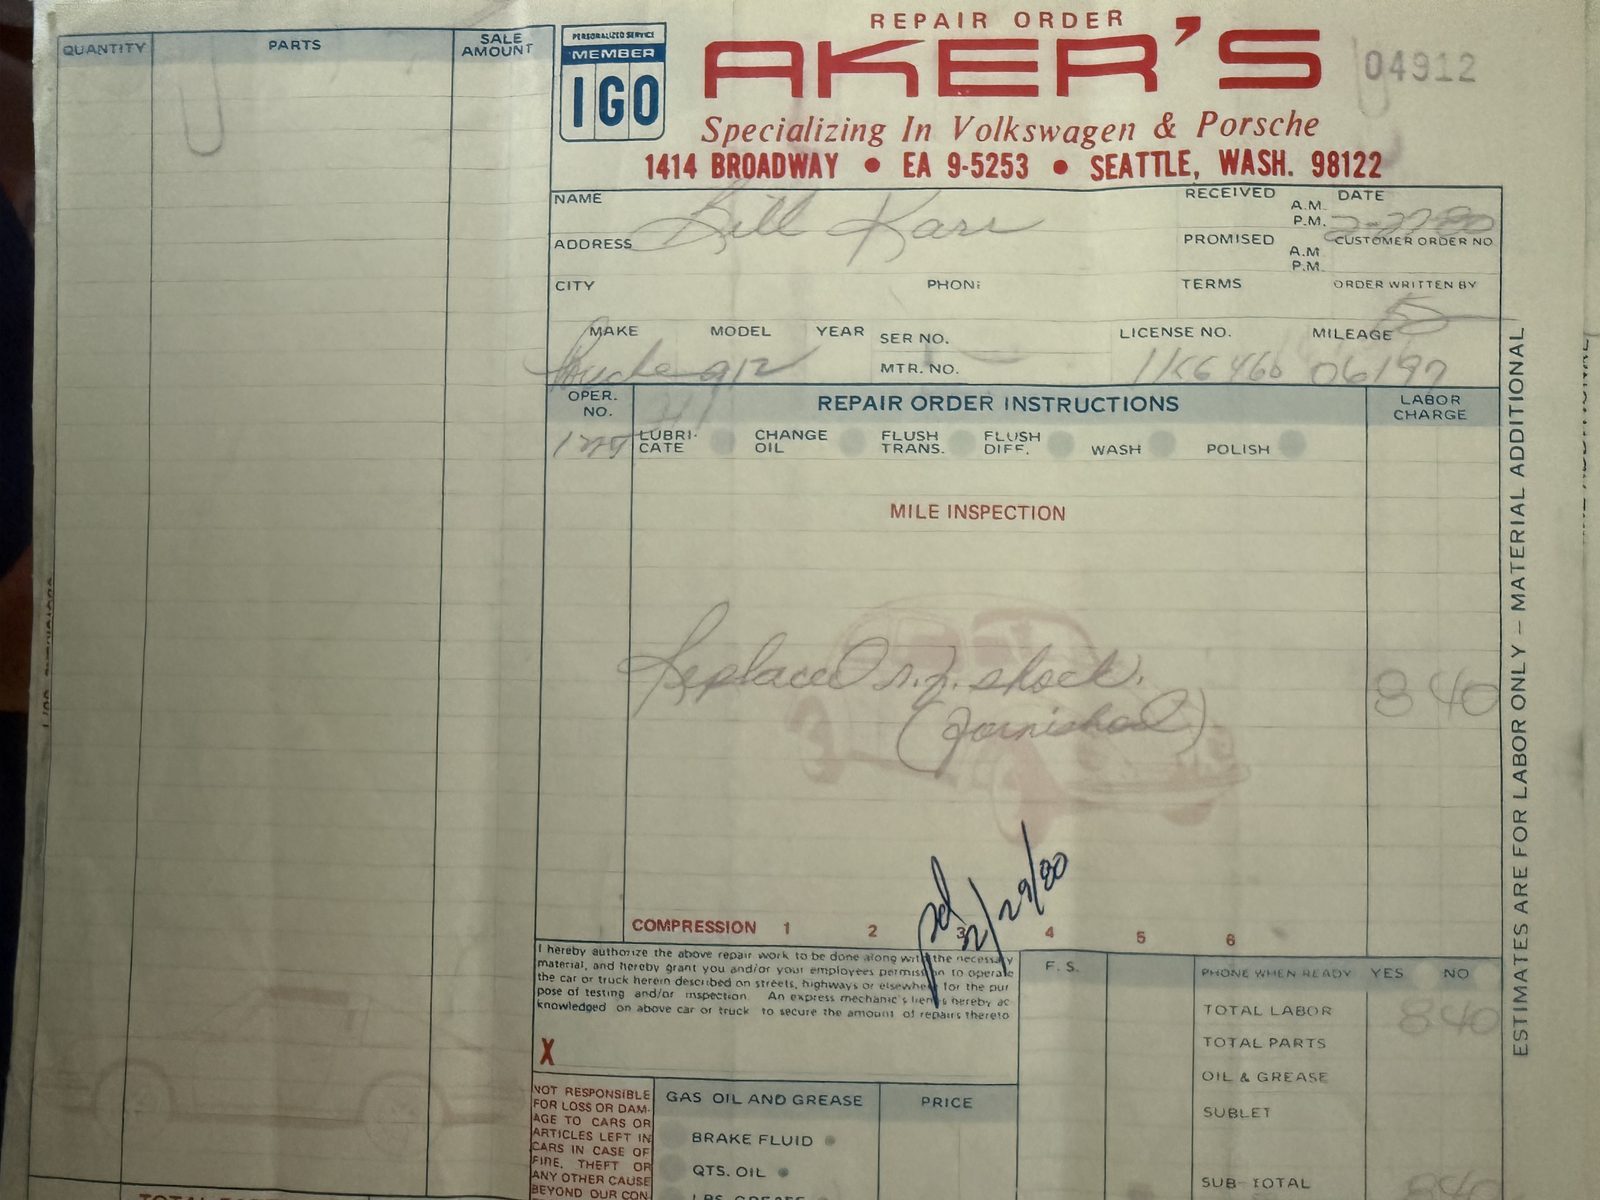 QUANTITY PARTS SALE AMOUNT
PERSONALIZED SERVICE
MEMBER
IGO
REPAIR ORDER
AKER'S
04912
Specializing In Volkswagen & Porsche
1414 BROADWAY • EA 9-5253 • SEATTLE, WASH. 98122
NAME Bill Karr
RECEIVED A.M. P.M.
DATE 2-27-80
ADDRESS
PROMISED A.M. P.M.
CUSTOMER ORDER NO.
CITY PHONE TERMS ORDER WRITTEN BY
MAKE MODEL YEAR SER NO. LICENSE NO. MILEAGE
Porsche 912 MTR. NO. 06197
OPER. NO. REPAIR ORDER INSTRUCTIONS LABOR CHARGE
LUBRI-CATE CHANGE OIL FLUSH TRANS. FLUSH DIFF. WASH POLISH
MILE INSPECTION
Replaced r.f. shock. 8 40
(furnished)
pd 2/29/80
COMPRESSION 1 2 3 4 5 6
I hereby authorize the above repair work to be done along with the necessary
material, and hereby grant you and/or your employees permission to operate
the car or truck herein described on streets, highways or elsewhere for the pur
pose of testing and/or inspection An express mechanic's lien is hereby ac
knowledged on above car or truck to secure the amount of repairs thereto
X
F. S.
PHONE WHEN READY YES NO
TOTAL LABOR 8 40
TOTAL PARTS
OIL & GREASE
SUBLET
SUB-TOTAL 8 40
NOT RESPONSIBLE
FOR LOSS OR DAM-
AGE TO CARS OR
ARTICLES LEFT IN
CARS IN CASE OF
FIRE, THEFT OR
ANY OTHER CAUSE
BEYOND OUR CON-
GAS OIL AND GREASE PRICE
BRAKE FLUID
QTS. OIL
LBS GREASE
ESTIMATES ARE FOR LABOR ONLY – MATERIAL ADDITIONAL